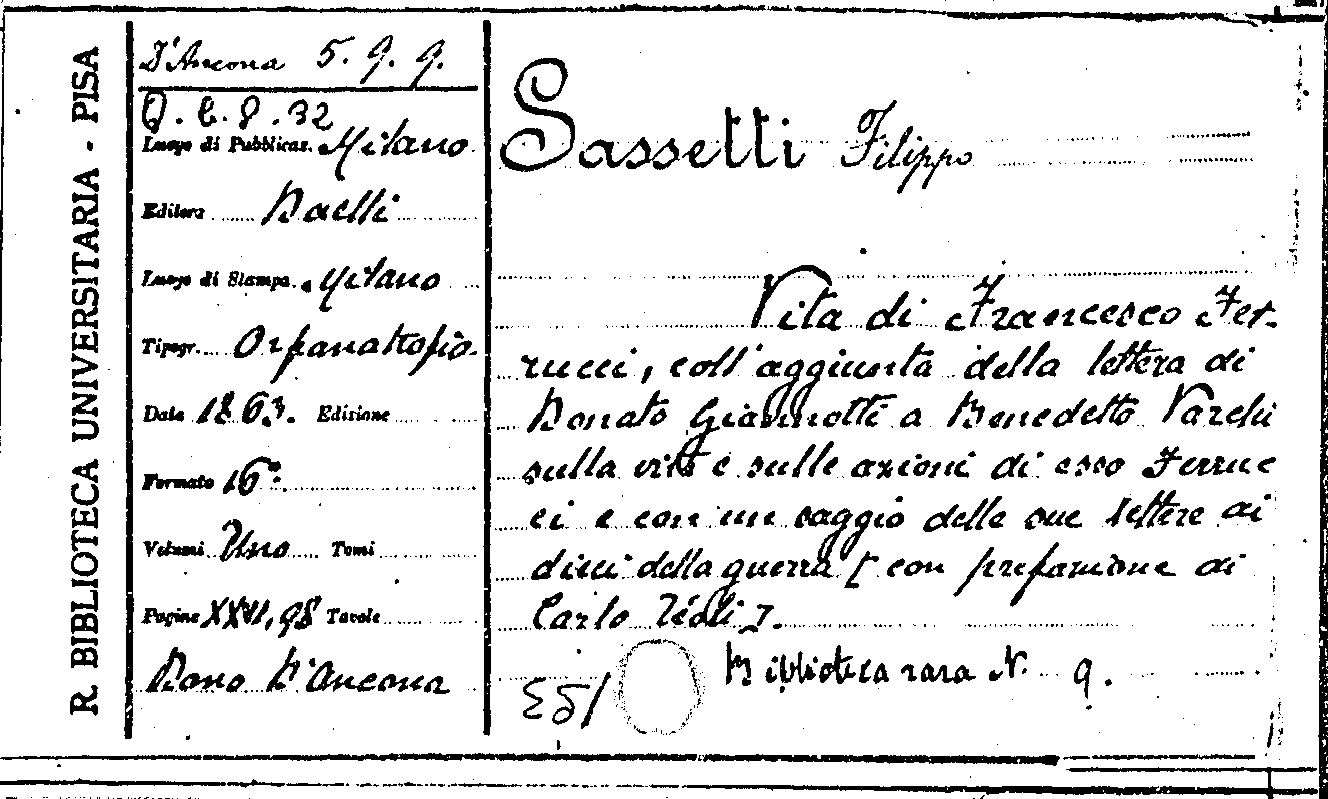 R. BIBLIOTECA UNIVERSITARIA - PISA
D'Ancona 5. 9. 9.
Q. b. 8. 32
Luogo di Pubblicaz. Milano
Editore Daelli
Luogo di Stampa Milano
Tipogr. Orfanatrofio
Data 1863. Edizione
Formato 16°.
Volumi Uno Tomi
Pagine XXVI, 98 Tavole
Dono D'Ancona
Sassetti Filippo
Vita di Francesco Fer-
rucci, coll'aggiunta della lettera di
Donato Giannotti a Benedetto Varchi
sulla vita e sulle azioni di esso Ferruc
ci e con un saggio delle sue lettere ai
dieci della guerra [con prefazione di
Carlo Téoli].
Biblioteca rara N. 9.